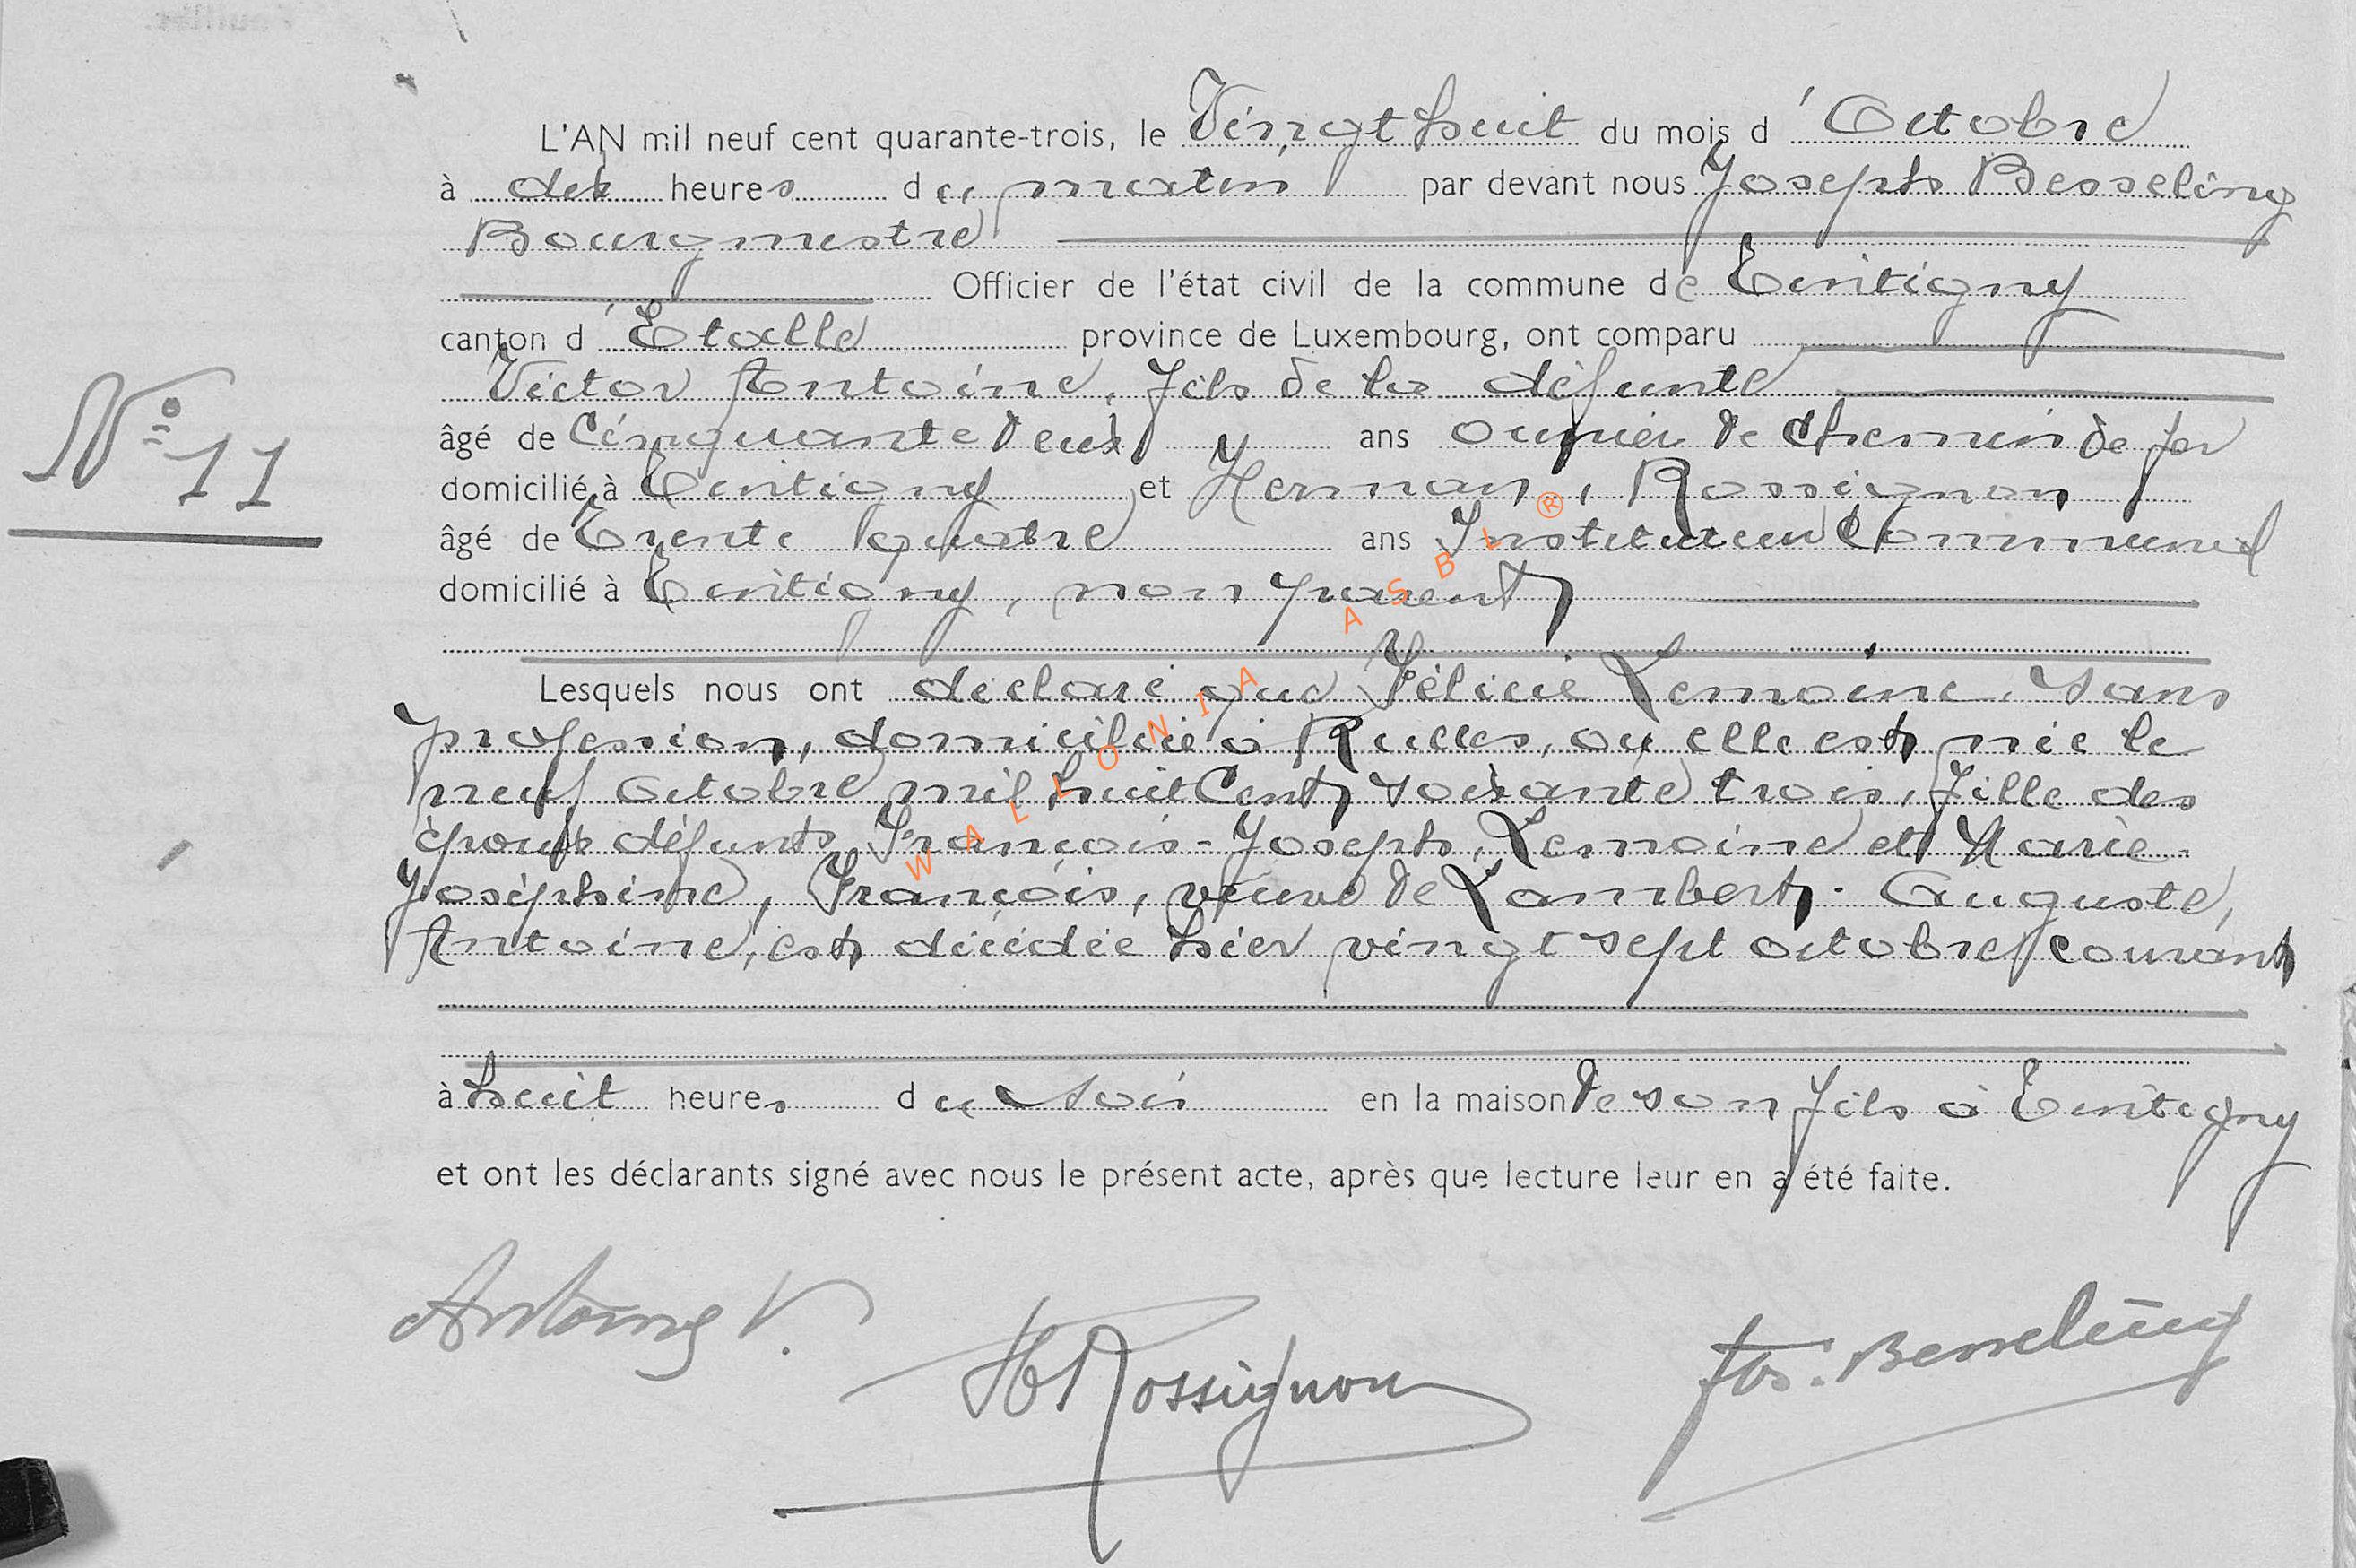 L'AN mil neuf cent quarante-trois, le Vingt huit du mois d'Octobre
à dix heures du matin par devant nous Joseph Besseling
Bourgmestre
Officier de l'état civil de la commune de Tintigny
canton d'Etalle province de Luxembourg, ont comparu
Victor Antoine, fils de la défunte
âgé de Cinquante deux ans ouvrier de chemin de fer
domicilié à Tintigny et Herman, Rossignon
N° 11
âgé de Trente quatre ans Instituteur Communal
domicilié à Tintigny, non parent
Lesquels nous ont déclaré que Félicie Lemoine, sans
profession, domiciliée à Rulles, où elle est née le
neuf octobre mil huit Cent soixante trois, fille des
époux défunts François-Joseph, Lemoine et Marie-
Joséphine, François, veuve de Lambert-Auguste,
Antoine, est décédée hier vingt sept octobre courant
à huit heures du soir en la maison de son fils à Tintigny
et ont les déclarants signé avec nous le présent acte, après que lecture leur en a été faite.
Antoine V.
H Rossignon
Jos. Besseling
WALLONIA ASBL ®